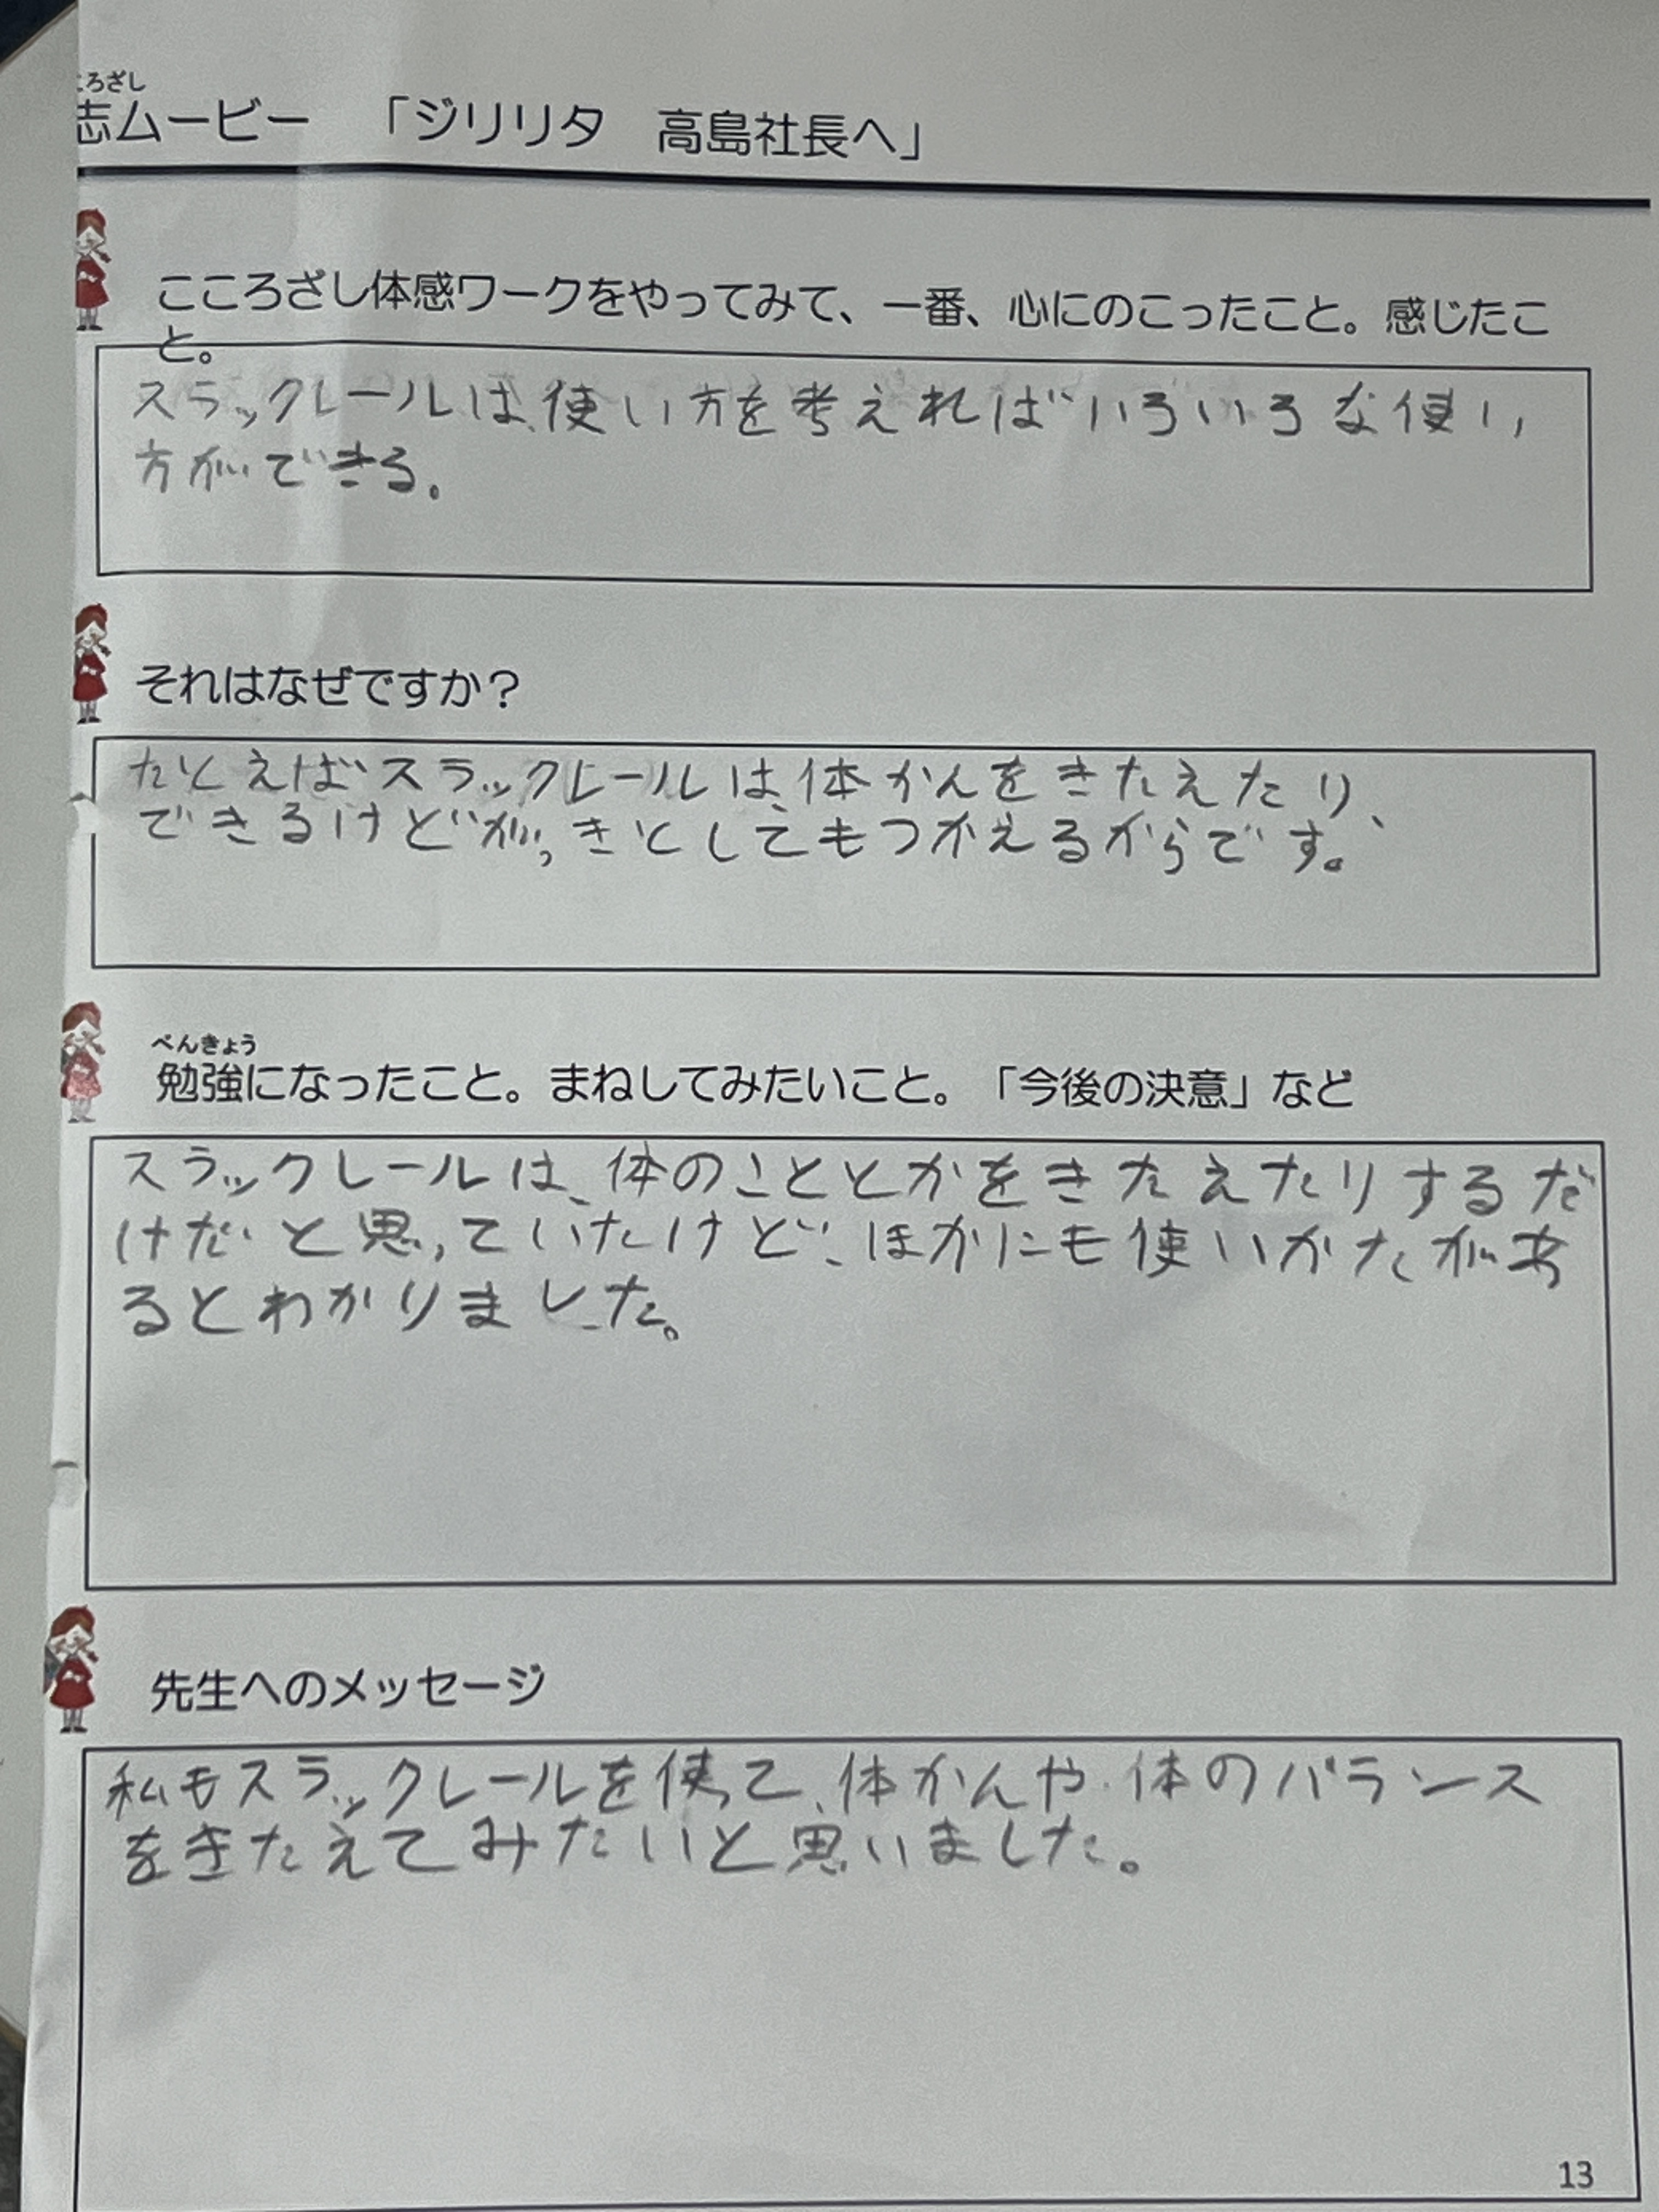 ころざし
志ムービー 「ジリリタ 高島社長へ」
こころざし体感ワークをやってみて、一番、心にのこったこと。感じたこ
と。
スラックレールは、使い方を考えればいろいろな使い
方ができる。
それはなぜですか？
たとえばスラックレールは、体かんをきたえたり、
できるけどがっきとしてもつかえるからです。
べんきょう
勉強になったこと。まねしてみたいこと。「今後の決意」など
スラックレールは、体のこととかをきたえたりするだ
けだと思っていたけど、ほかにも使いかたがあ
るとわかりました。
先生へのメッセージ
私もスラックレールを使って、体かんや体のバランス
をきたえてみたいと思いました。
13